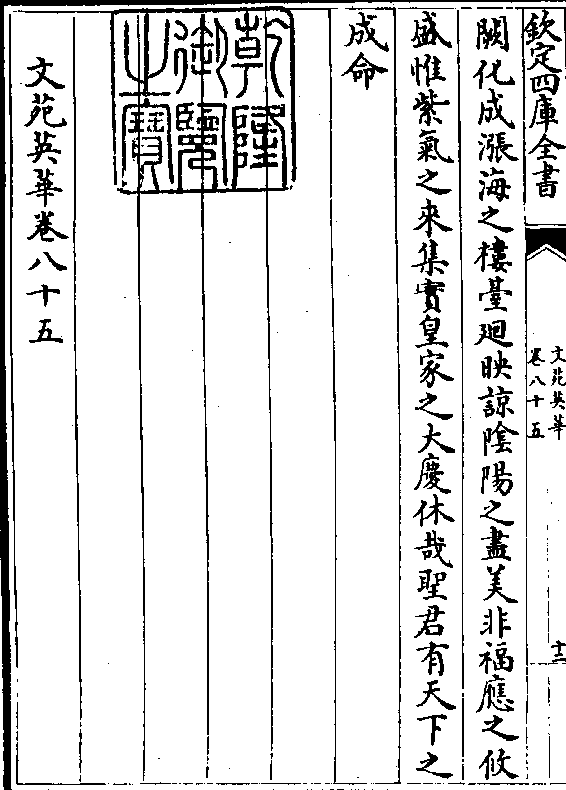 欽定四庫全書
文苑英華
卷八十五
十二
闕化成漲海之樓臺廻映諒陰陽之盡美非福應之攸
盛惟紫氣之來集實皇家之大慶休哉聖君有天下之
成命
乾隆
御覽
之寶
文苑英華卷八十五